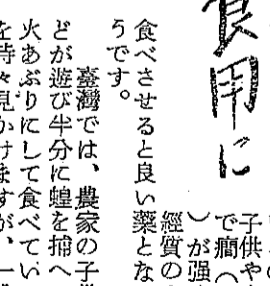 食用に
子供や
で癇（
）が強
經質の
食べさせると良い藥とな
うです。
臺灣では、農家の子
どが遊び半分に蝗を捕へ
火あぶりにして食べてい
を時々見かけますが、一